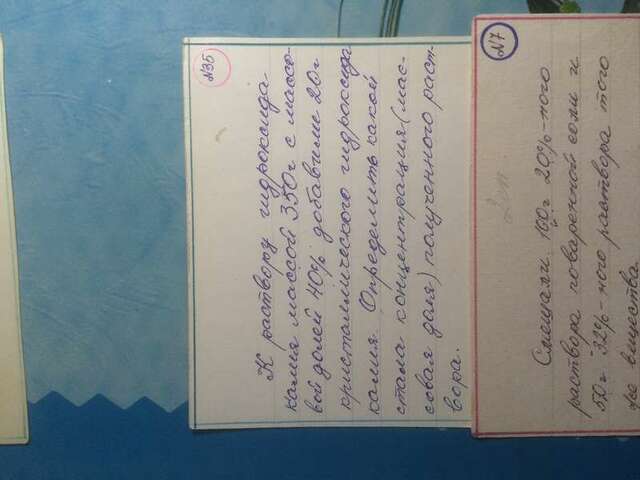 N35
К раствору гидроксида
калия массой 350 г с массо-
вой долей 40% добавили 20 г
кристаллического гидроксида
калия. Определить какой
стала концентрация (мас-
совая доля) полученного раст-
вора.
N7
Смешали 160 г 20%-ного
раствора поваренной соли и
50 г 32%-ного раствора того
же вещества.